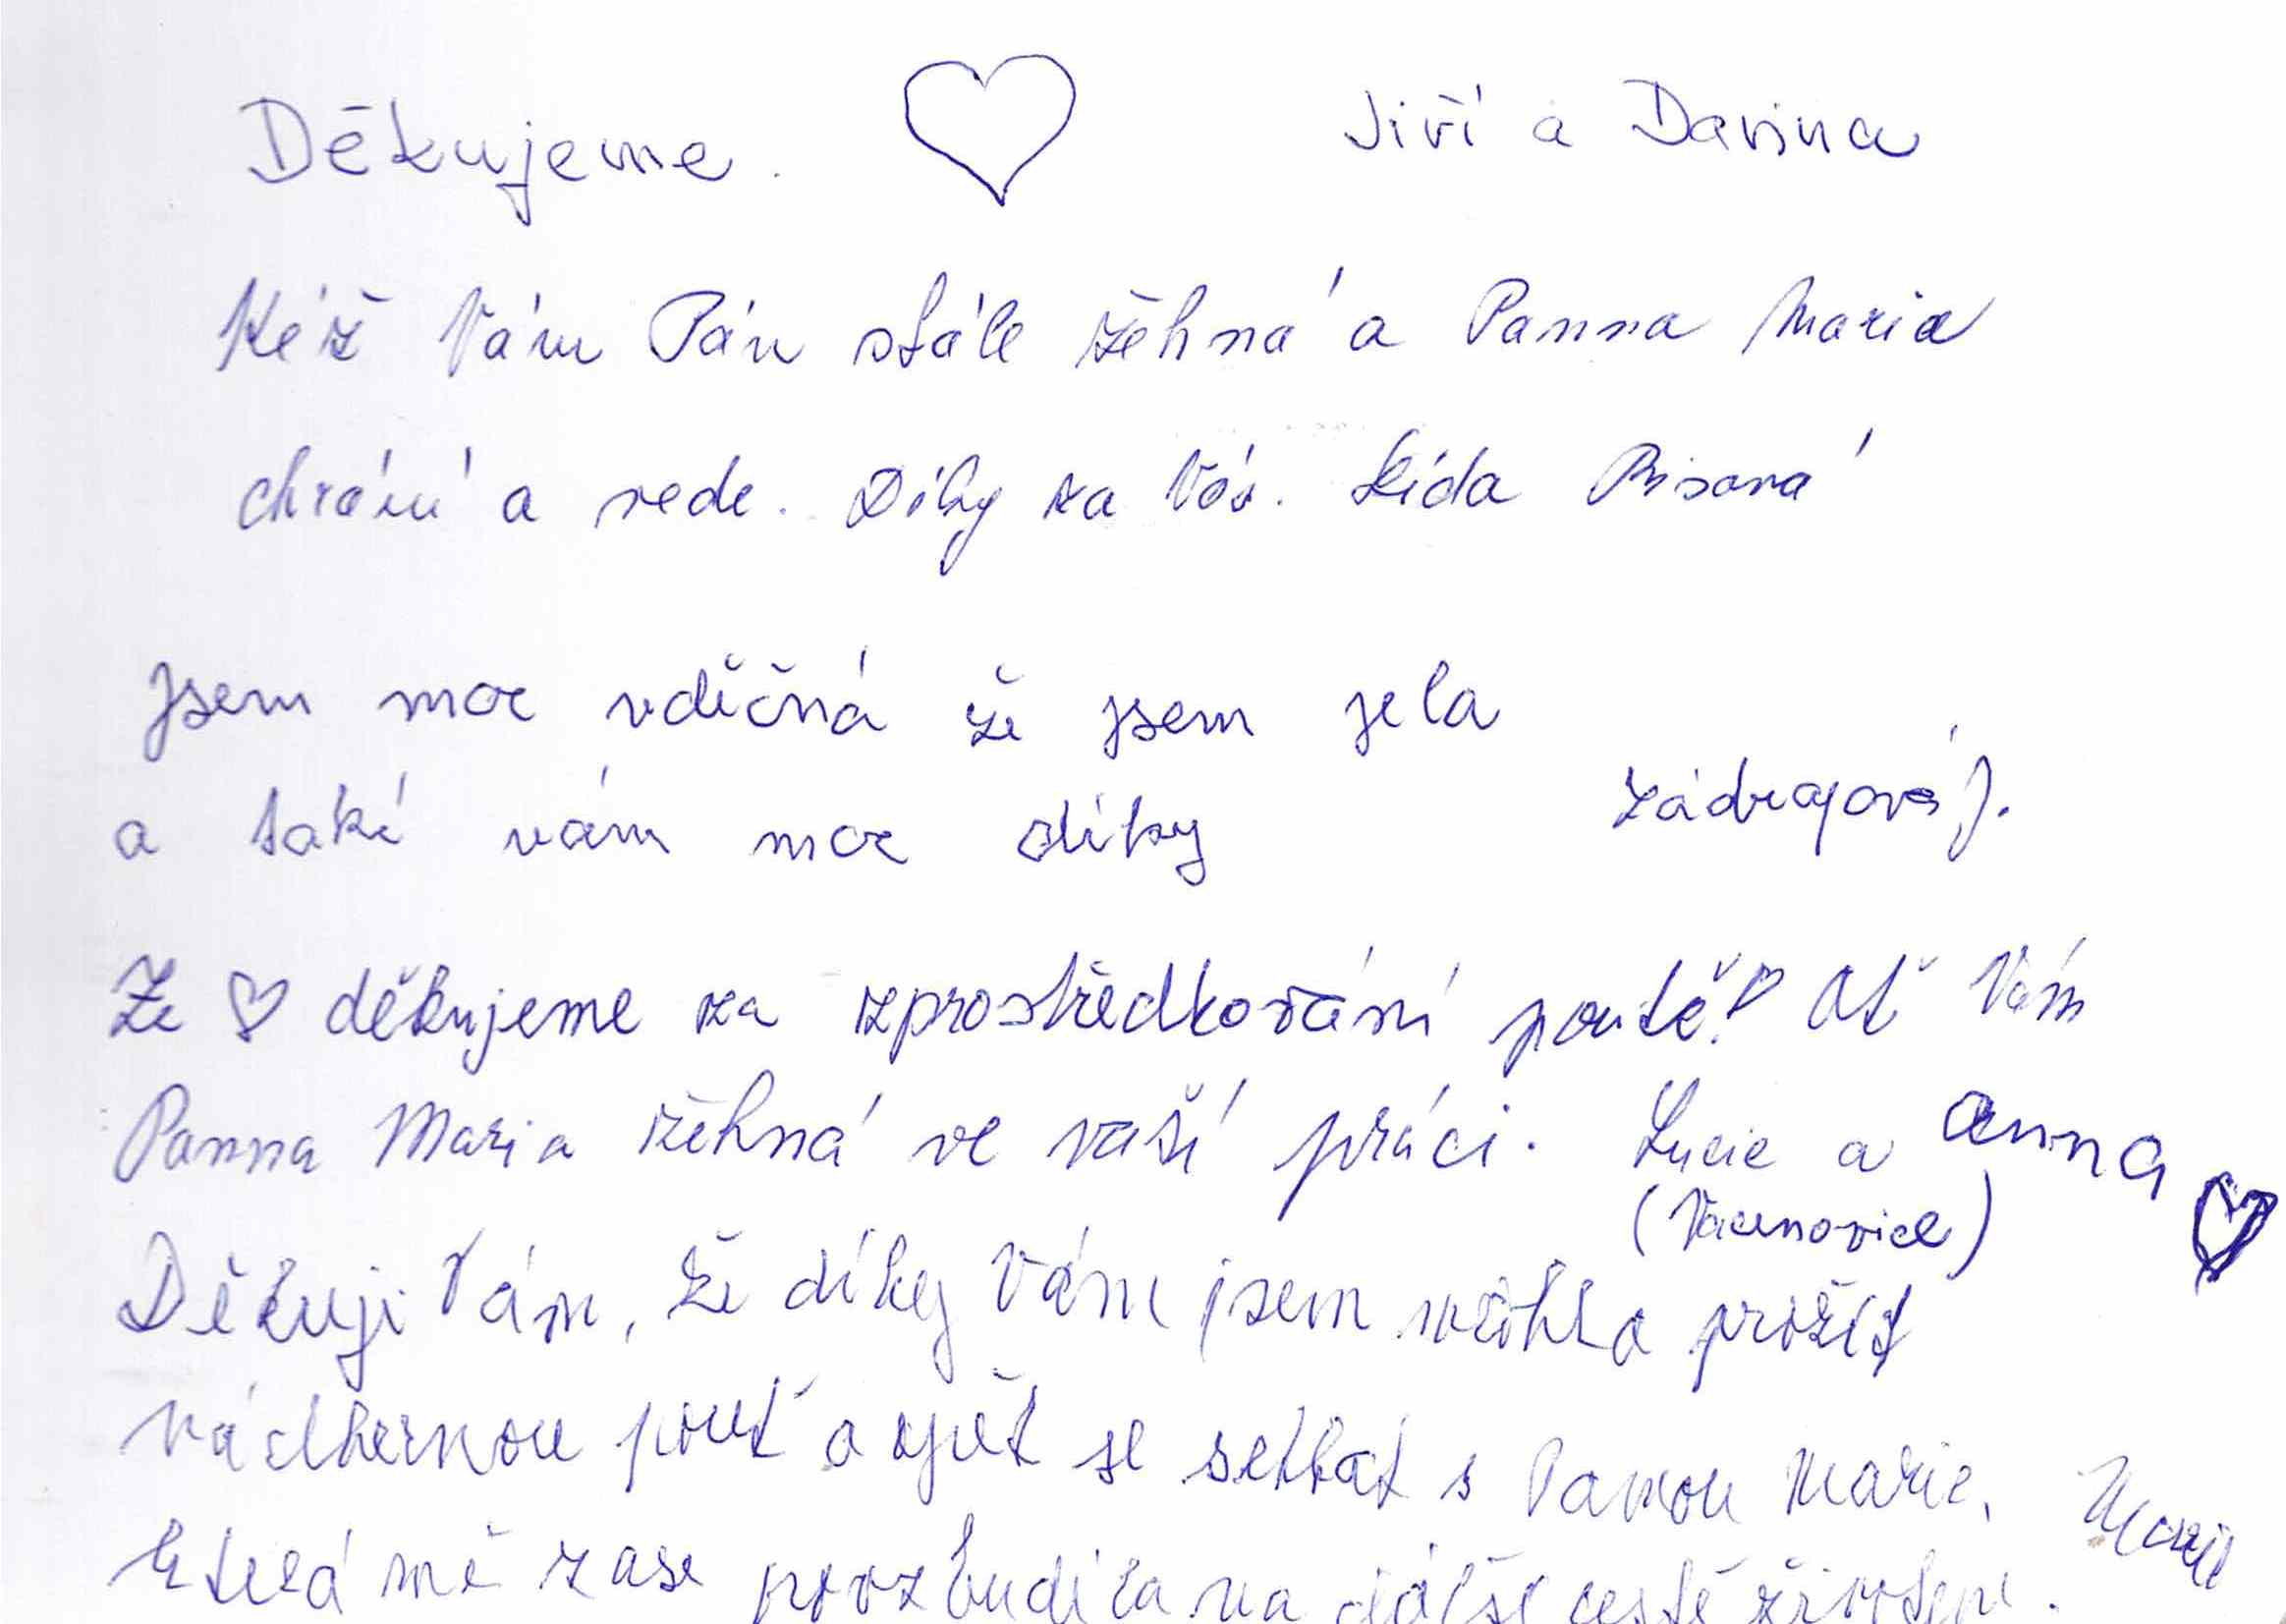 Děkujeme. Jiří a Darina
Kéž Vám Pán stále žehná a Panna Maria
chrání a vede. Díky za Vás. Lída
Jsem moc vděčná že jsem jela
a také vám moc díky
Ze ♡ děkujeme za zprostředkování poutě! Ať Vám
Panna Maria žehná ve vaší práci. Lucie a Anna
(Vacenovice)
Děkuji Vám, že díky Vám jsem mohla prožít
nádhernou pouť a opět se setkat s Pannou Marií,
která mě zase povzbudila na další cestě životem. Marie